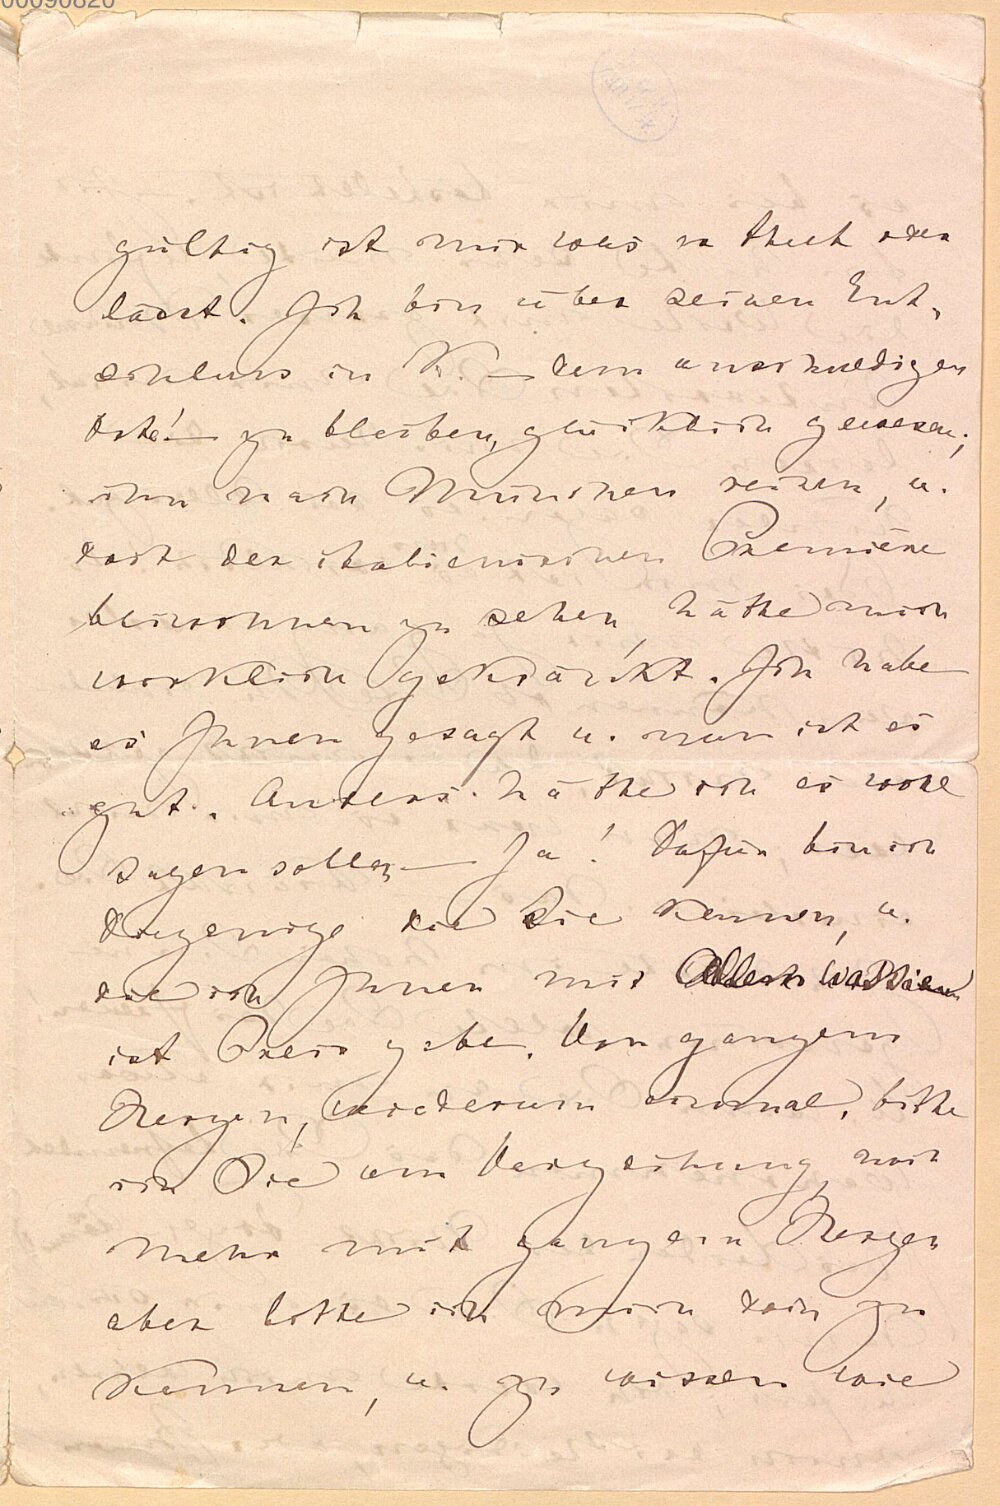 00090820
gültig ist mir was er thut oder
lässt. Ich bin über seinen Ent-
schluss in K. — dem unschuldigen
Orte! — zu bleiben, glücklich gewesen;
ihn nach München reisen, u.
dort der italienischen Première
beiwohnen zu sehen, hätte mich
wirklich gekränkt. Ich habe
es Ihnen gesagt u. nun ist es
gut. Anders hätte ich es wohl
sagen sollen — Ja! Dafür bin ich
diejenige die Sie kennen, u.
die ich Ihnen mit Allem was
ist Preis gebe. Von ganzem
Herzen, wiederum einmal, bitte
ich Sie um Verzeihung, noch
mehr mit ganzem Herzen
aber bitte ich mich doch zu
kennen, u. zu wissen wie